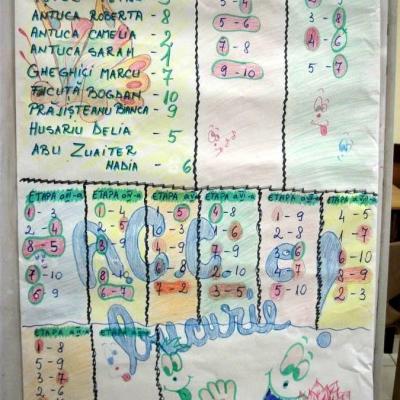 ANTUCA ROBERTA - 8
ANTUCA CAMELIA - 2
ANTUCA SARAH - 1
GHEGHICI MARCU - 7
FĂCUTĂ BOGDAN - 10
PRĂJIȘTEANU BIANCA - 9
HUSARIU DELIA - 5
ABU ZUAITER
NADIA - 6
5 - 4
5 - 6
7 - 8
9 - 10
3 - 8
4 - 6
5 - 7
ETAPA
1 - 3
2 - 4
8 - 5
7 - 10
6 - 9
ETAPA
1 - 4
3 - 9
8 - 10
6 - 7
ETAPA
1 - 5
7 - 8
ETAPA
4 - 8
1 - 6
7 - 9
3 - 5
ETAPA
1 - 9
2 - 8
3 - 6
4 - 7
5 - 10
ETAPA
4 - 5
1 - 7
6 - 10
8 - 9
2 - 3
bucurie
ETAPA
1 - 8
5 - 9
3 - 7
2 - 6
ETAPA